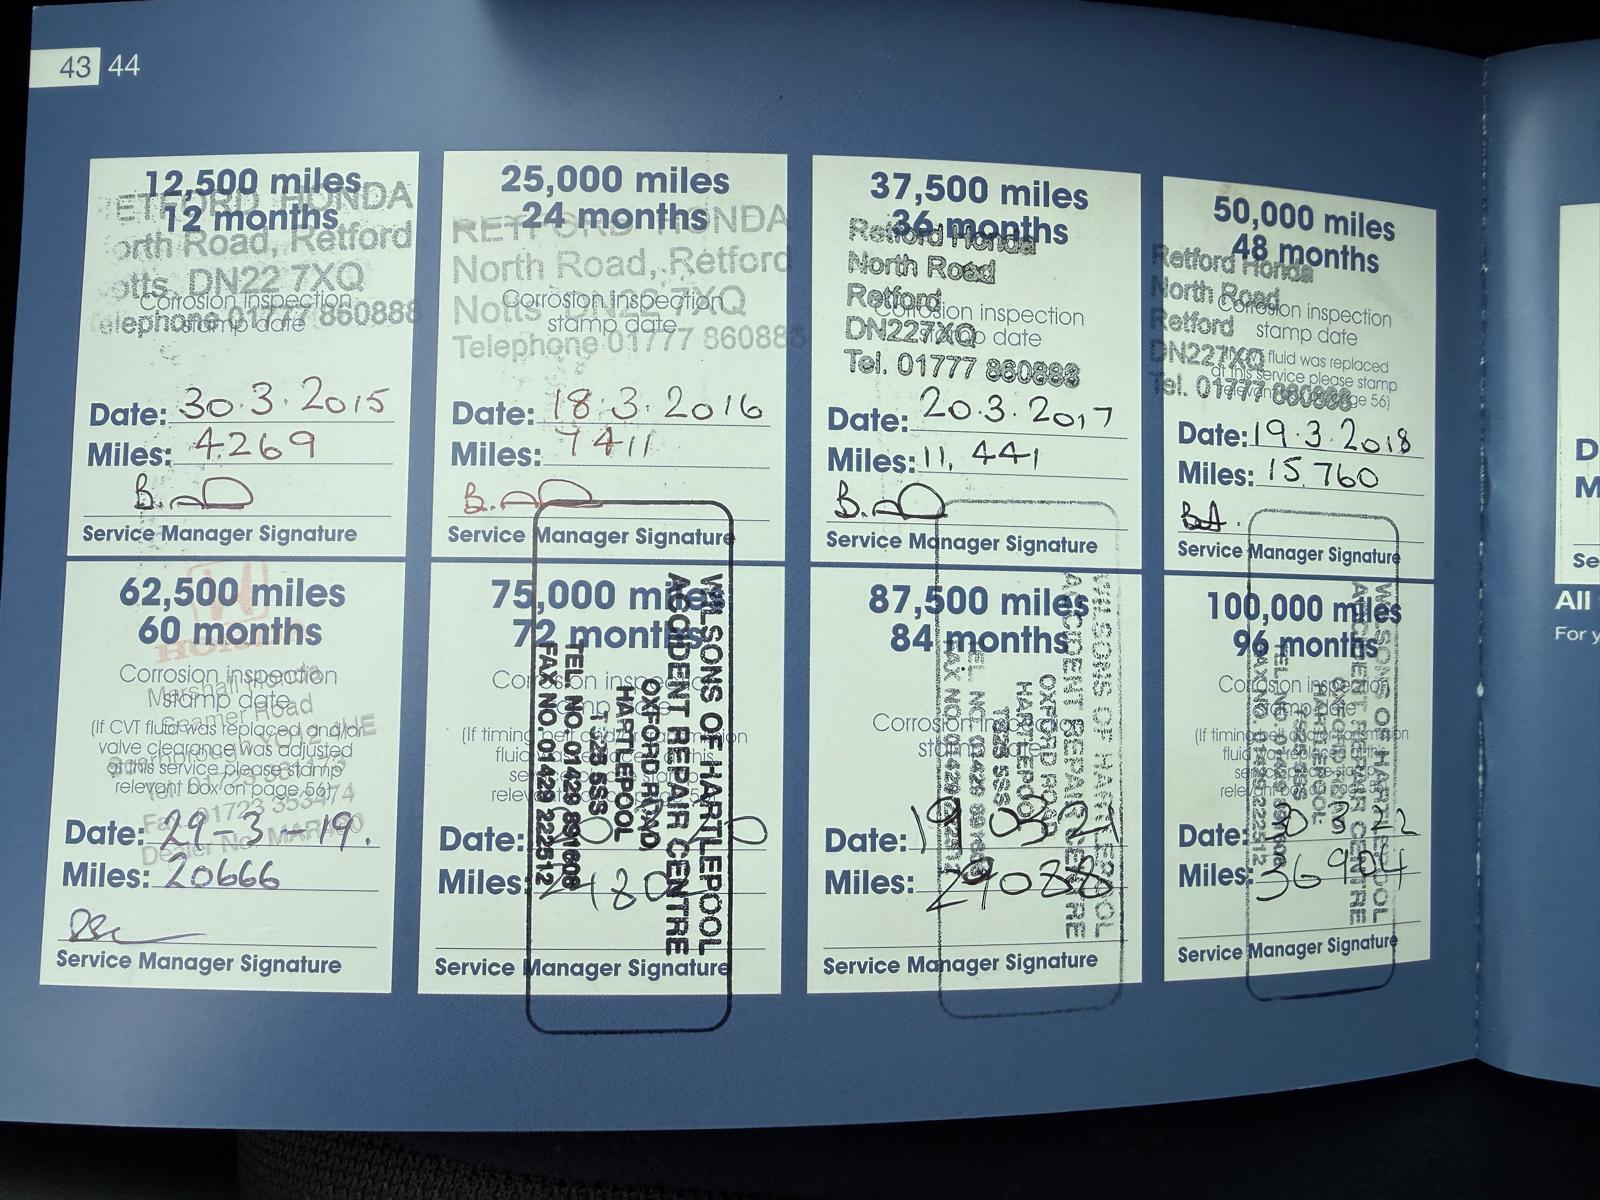 43 44
12,500 miles
12 months
RETFORD HONDA
North Road, Retford
Notts. DN22 7XQ
Telephone 01777 860888
Corrosion inspection
stamp date
Date: 30.3.2015
Miles: 4269
Service Manager Signature
25,000 miles
24 months
RETFORD HONDA
North Road, Retford
Notts DN22 7XQ
Telephone 01777 860888
Corrosion inspection
stamp date
Date: 18.3.2016
Miles: 7411
Service Manager Signature
37,500 miles
36 months
Retford Honda
North Road
Retford
DN227XQ
Tel. 01777 860888
Corrosion inspection
stamp date
Date: 20.3.2017
Miles: 11,441
Service Manager Signature
50,000 miles
48 months
Retford Honda
North Road
Retford
DN227XQ
Tel. 01777 860888
Corrosion inspection
stamp date
fluid was replaced
at this service please stamp
relevant box on page 56)
Date: 19.3.2018
Miles: 15,760
Service Manager Signature
62,500 miles
60 months
HONDA
Corrosion inspection
stamp date
Marshall Honda
Seamer Road
(If CVT fluid was replaced and/or
valve clearance was adjusted
at this service please stamp
relevant box on page 56)
01723 353474
Date: 29-3-19.
Miles: 20666
Service Manager Signature
75,000 miles
72 months
WILSONS OF HARTLEPOOL
ACCIDENT REPAIR CENTRE
OXFORD ROAD,
HARTLEPOOL
TS25 5SS
TEL. NO. 01429 891608
FAX NO. 01429 222512
(If timing
Date:
Miles:
Service Manager Signature
87,500 miles
84 months
WILSONS OF HARTLEPOOL
ACCIDENT REPAIR CENTRE
OXFORD ROAD
HARTLEPOOL
TS25 5SS
TEL. NO. 01429 891608
FAX NO. 01429 222512
Corrosion inspection
Date: 19 03 21
Miles: 29088
Service Manager Signature
100,000 miles
96 months
WILSONS OF HARTLEPOOL
ACCIDENT REPAIR CENTRE
OXFORD ROAD
HARTLEPOOL
TS25 5SS
TEL. NO. 01429 891608
FAX NO. 01429 222512
Corrosion inspection
stamp date
Date: 3 22
Miles: 36904
Service Manager Signature
All
For y